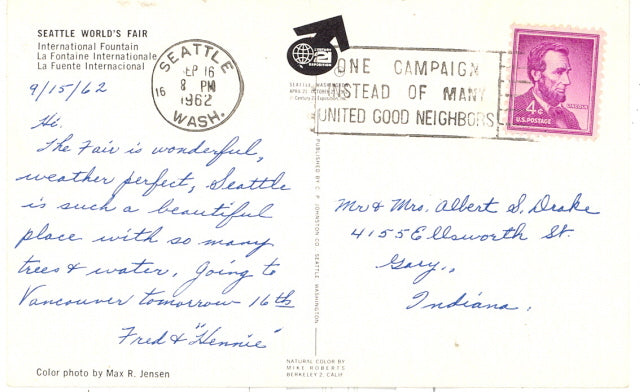 SEATTLE WORLD'S FAIR
International Fountain
La Fontaine Internationale
La Fuente Internacional
9/15/62
Hi,
The Fair is wonderful,
weather perfect, Seattle
is such a beautiful
place with so many
trees & water. Going to
Vancouver tomorrow 16th
Fred & "Hennie"
Color photo by Max R. Jensen
SEATTLE
SEP 16
8 PM
16
1962
WASH.
21
ONE CAMPAIGN
INSTEAD OF MANY
UNITED GOOD NEIGHBORS
LINCOLN
4¢
U.S. POSTAGE
PUBLISHED BY C. P. JOHNSTON CO. SEATTLE, WASHINGTON
Mr & Mrs. Albert S. Drake
4155 Ellsworth St.
Gary,
Indiana.
NATURAL COLOR BY
MIKE ROBERTS
BERKELEY 2, CALIF